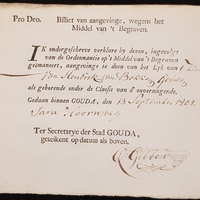 Pro Deo. Billiet van aangevinge, wegens het
Middel van 't Begraven.
IK ondergeschreve verklare by dezen, ingevolge
van de Ordonnantie op 't Middel van 't Begraven
geïmaneert, aangevinge te doen van het Lyk van
Van Hendrik van
als gehorende onder de Classis van d'onvermogende.
Gedaan binnen GOUDA, den 13 September 1802.
Sara Hoornweg
Ter Secretarye der Stad GOUDA,
geteikent op datum als boven.